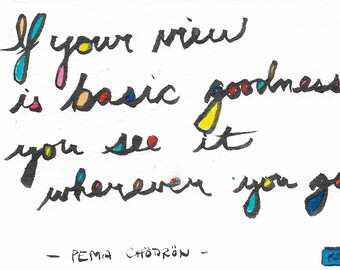 If your view
is basic goodness
you see it
wherever you go
- PEMA CHÖDRÖN -